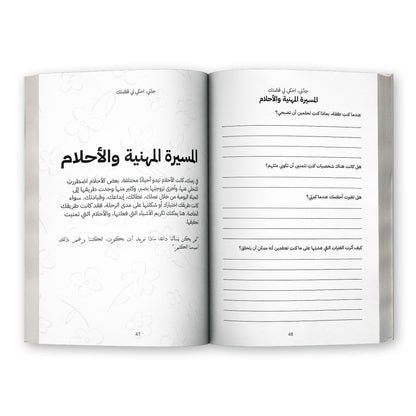 جدتي، احكي لي قصتك
المسيرة المهنية والأحلام
في زمنك، كانت الأحلام تبدو أحيانًا مختلفة. بعض الأحلام اضطررتِ
للتخلي عنها، وأخرى بصبر، وكثير منها وجدت طريقها إلى
الحياة اليومية من خلال عملك، عطائك، إبداعك، وقيادتك. سواء
كانت طريقك باختيارك أو شكلتها على مدى الرحلة، فقد كانت طريقك
الخاصة. هنا يمكنك تكريم الأشياء التي فعلتها، والأحلام التي تمنيت
تحقيقها.
"لم يكن يسألنا دائمًا ماذا نريد أن نكون، لكننا رغم ذلك
أصبحنا الكثير."
47
جدتي، احكي لي قصتك
المسيرة المهنية والأحلام
عندما كنتِ طفلة، بماذا كنتِ تحلمين أن تصبحي؟
هل كانت هناك شخصيات كنتِ تتمنين أن تكوني مثلهم؟
هل تغيرت أحلامك عندما كبرتِ؟
كيف أثرت الفترات التي عشتِها على ما كنت تعتقدين أنه ممكن أن يتحقق؟
48